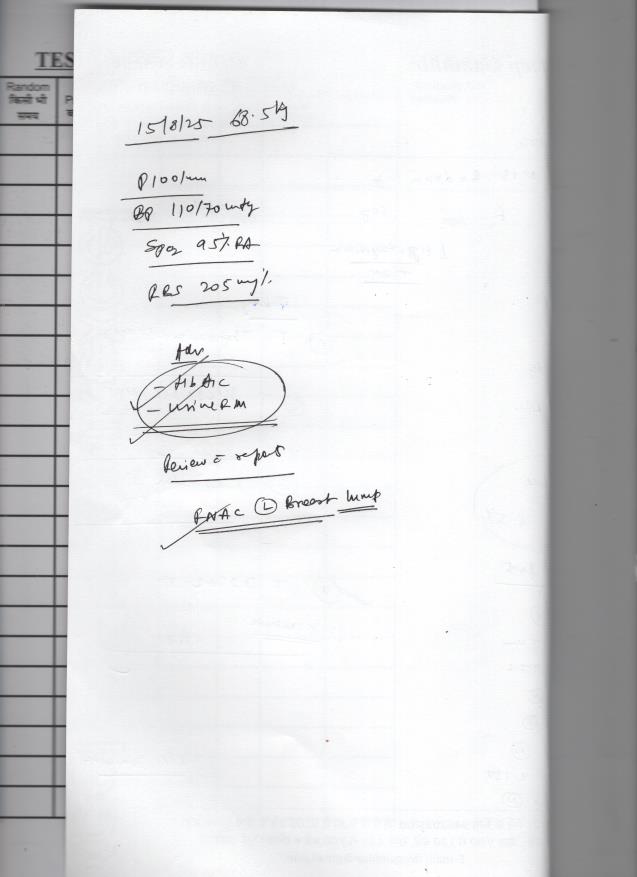 TES
Random
किसी भी
समय
P
15/8/25 68.5kg
P 100/min
BP 110/70 mmHg
SpO2 95% RA
RBS 205 mg%
Adv
- HbA1c
- Urine RM
Review c̄ report
FNAC Ⓛ Breast lump